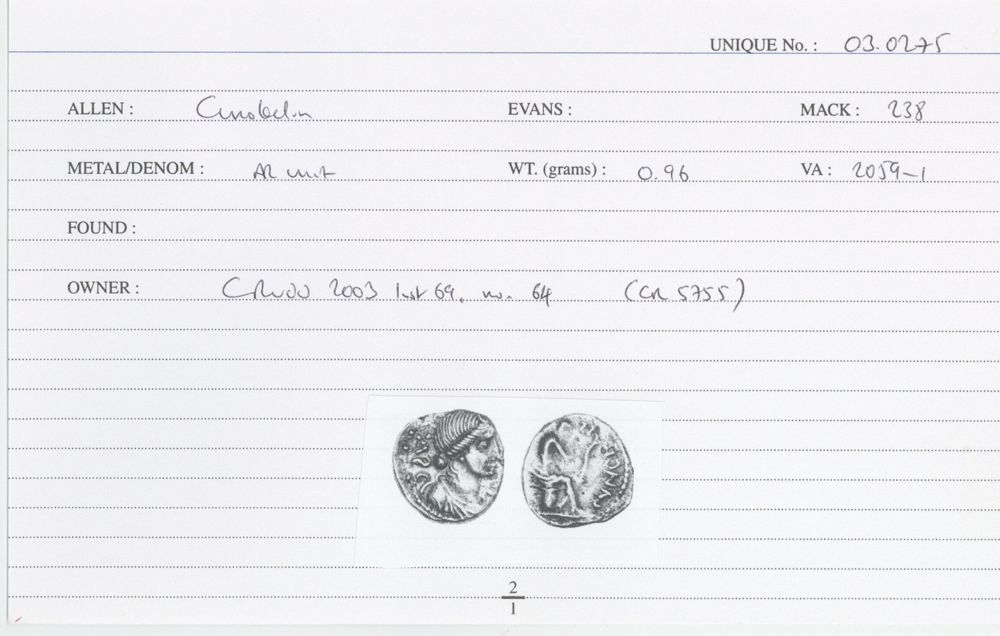 UNIQUE No. : 03.0275
ALLEN : Cunobelin EVANS : MACK : 238
METAL/DENOM : AR unit WT. (grams) : 0.96 VA : 2059-1
FOUND :
OWNER : 2003 list 69, no. 64 (CR 5755)
2
1